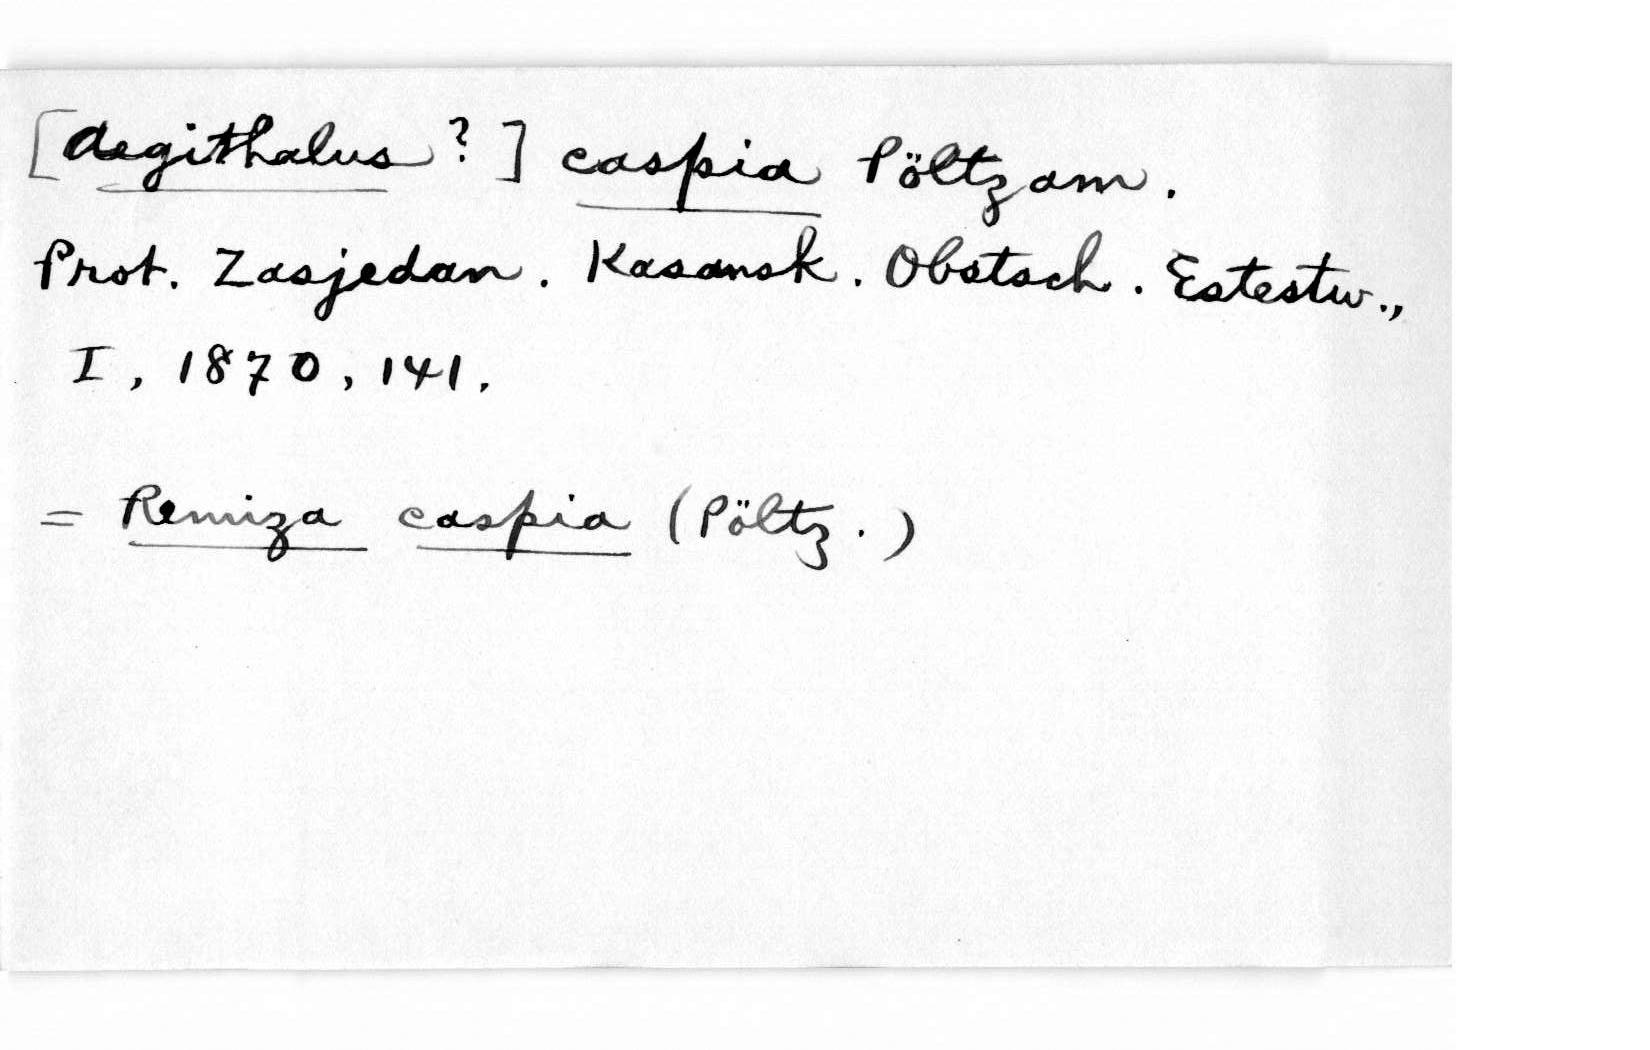 [Aegithalus ?] caspia Pöltzam.
Prot. Zasjedan. Kasansk. Obstsch. Estestw.,
I, 1870, 141.
= Remiza caspia (Pöltz.)